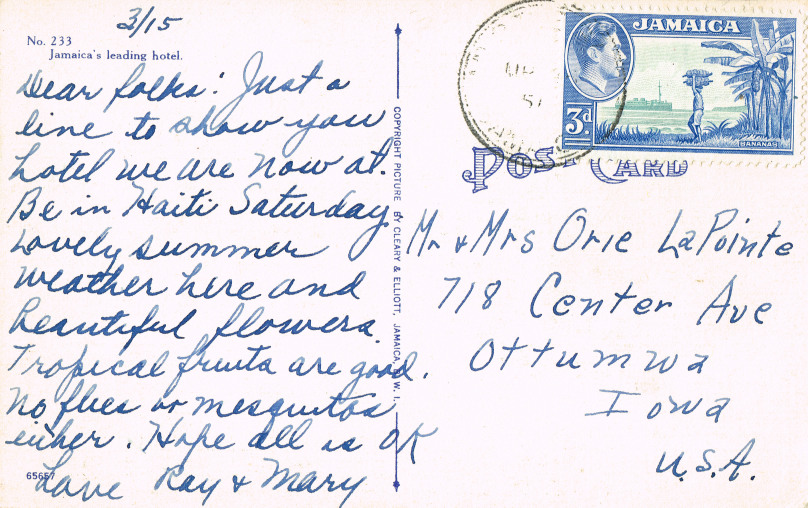 3/15
No. 233
Jamaica's leading hotel.
Dear folks: Just a
line to show you
hotel we are now at.
Be in Haiti Saturday
Lovely summer
weather here and
beautiful flowers.
Tropical fruits are good.
No flies or mesquitos
either. Hope all is OK
Love Ray & Mary
65657
COPYRIGHT PICTURE BY CLEARY & ELLIOTT, JAMAICA, B.W.I.
JAMAICA
3d
BANANAS
POST CARD
Mr & Mrs Orie LaPointe
718 Center Ave
Ottumwa
Iowa
U.S.A.